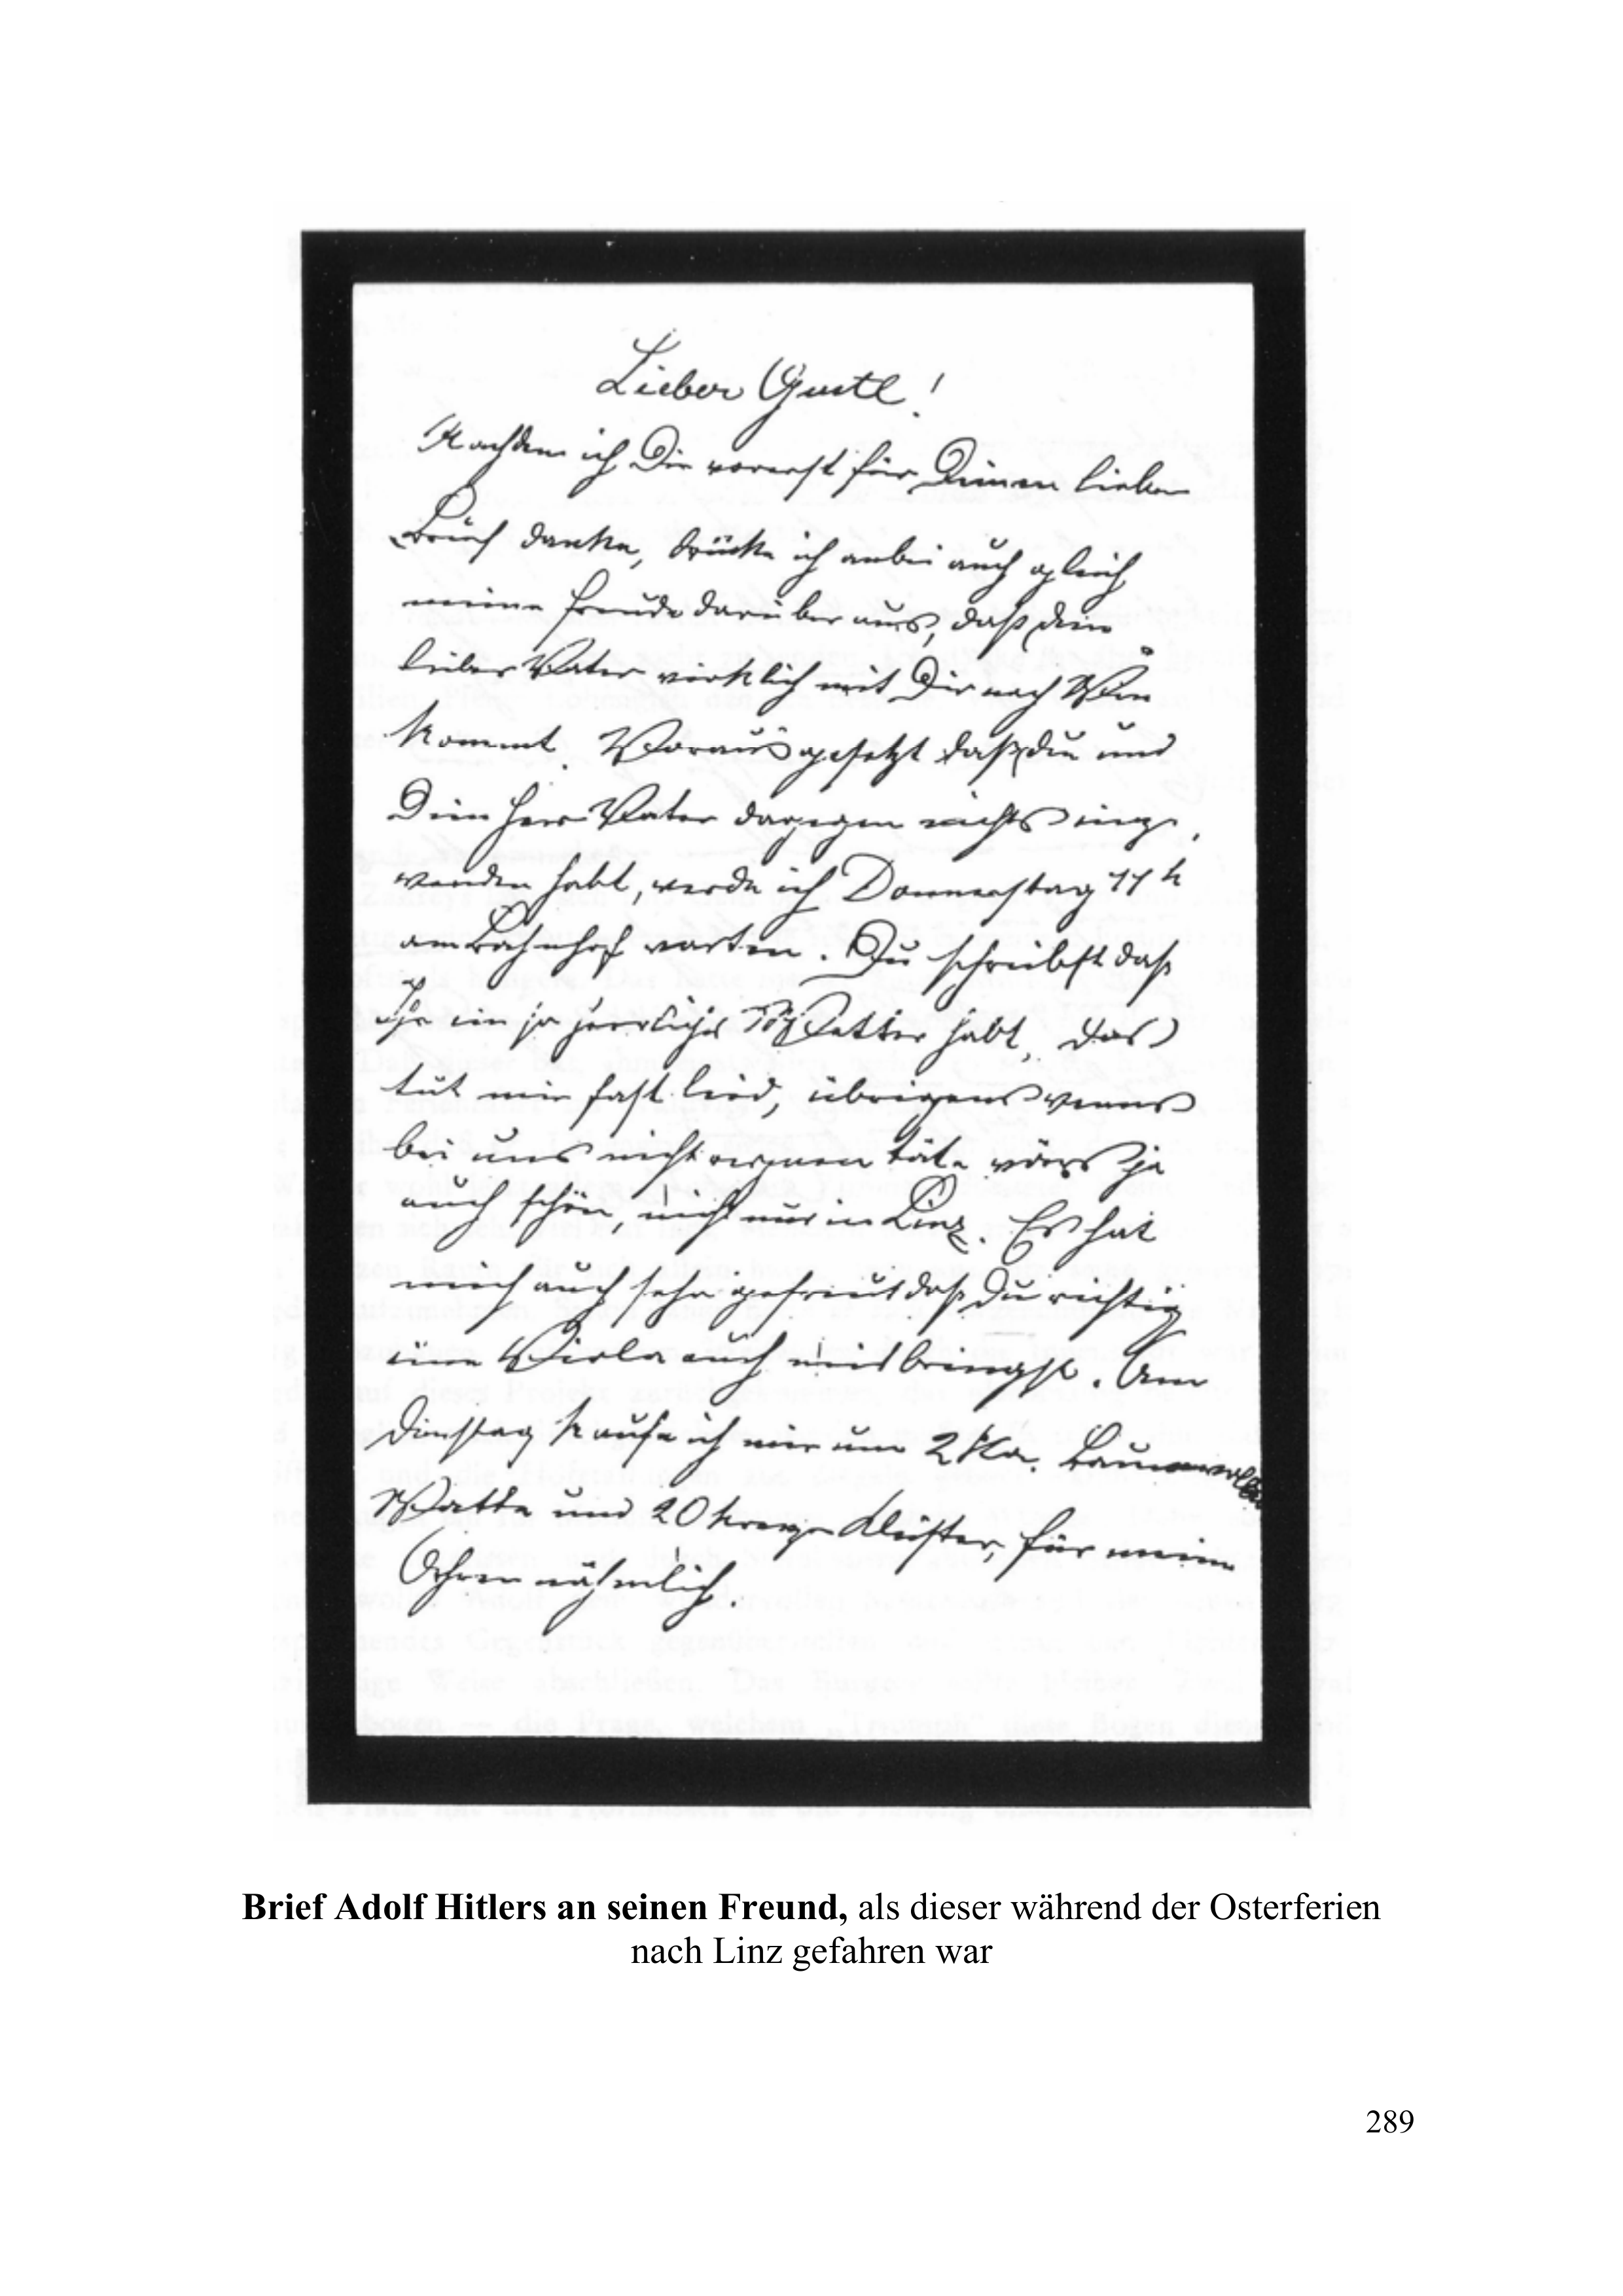 Lieber Gustl!
Nachdem ich Dir vorerst für Deinen lieben
Brief danke, drücke ich anbei auch gleich
meine Freude darüber aus, daß dein
lieber Vater wirklich mit Dir nach Wien
kommt. Vorausgesetzt daß du und
Dein Herr Vater dagegen nichts einge,
wenden habt, werde ich Donnerstag 11 h
am Bahnhof warten. Du schreibst daß
ihr ein so herrliches Wetter habt, das
tut mir fast leid, übrigens wenns
bei uns nicht regnen täte wärs ja
auch schön, nicht nur in Linz. Es hat
mich auch sehr gefreut daß Du richtig
eine Viola auch mitbringst. Am
Dienstag kaufe ich mir um 2 Kr. Baumwolle
Watte und 20 Kreuzer Kleister, für meine
Ohren nähmlich.
Brief Adolf Hitlers an seinen Freund, als dieser während der Osterferien
nach Linz gefahren war
289